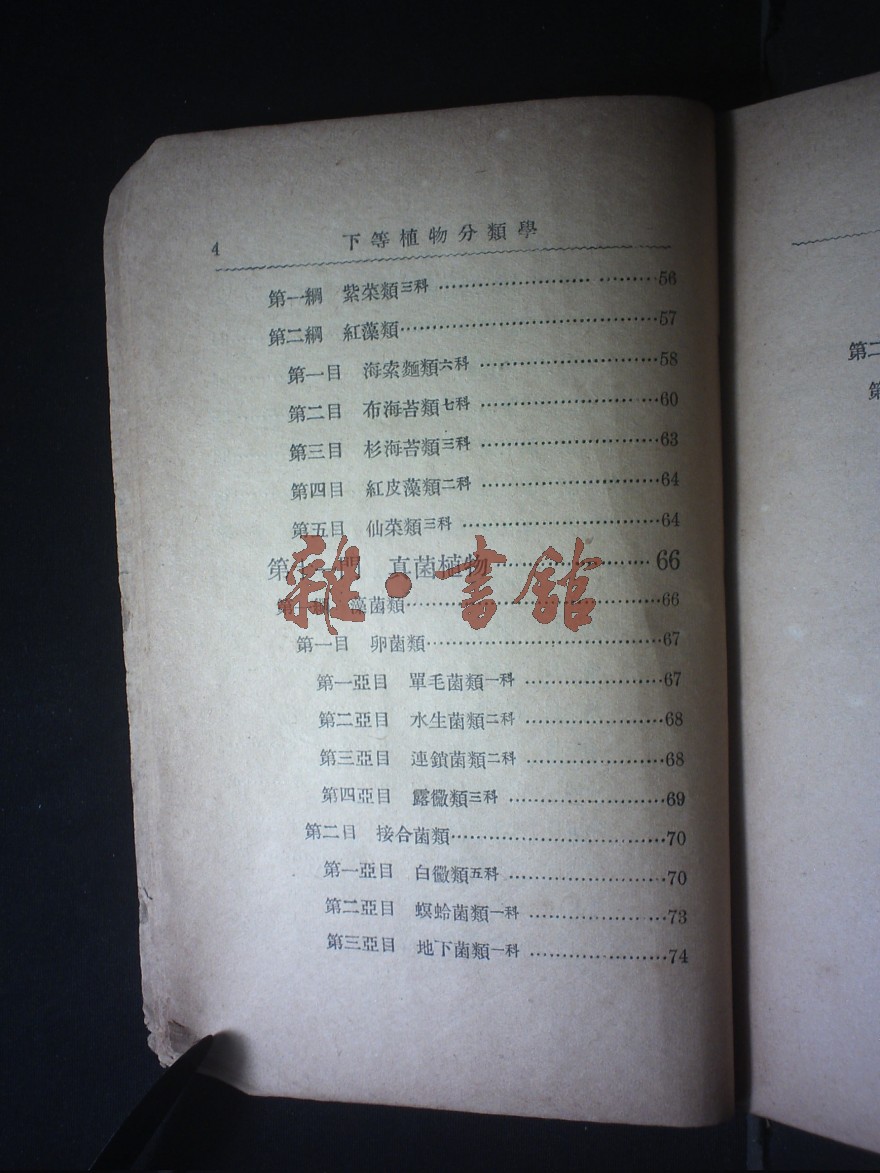 4
下等植物分類學
第一綱 紫菜類三科 …………………… ………56
第二綱 紅藻類……………………………57
第一目 海索麵類六科 ……………………58
第二目 布海苔類七科 ……………………60
第三目 杉海苔類三科 ……………………63
第四目 紅皮藻類二科 ……………………64
第五目 仙菜類三科 ………………………64
雜·書館
第 門 真菌植物……………………66
第一 藻菌類……………………………66
第一目 卵菌類……………………………67
第一亞目 單毛菌類一科 …………………67
第二亞目 水生菌類二科 …………………68
第三亞目 連鎖菌類二科 …………………68
第四亞目 露黴類三科 ……………………69
第二目 接合菌類…………………………70
第一亞目 白黴類五科 ……………………70
第二亞目 螟蛉菌類一科 …………………73
第三亞目 地下菌類一科 …………………74
第二
第